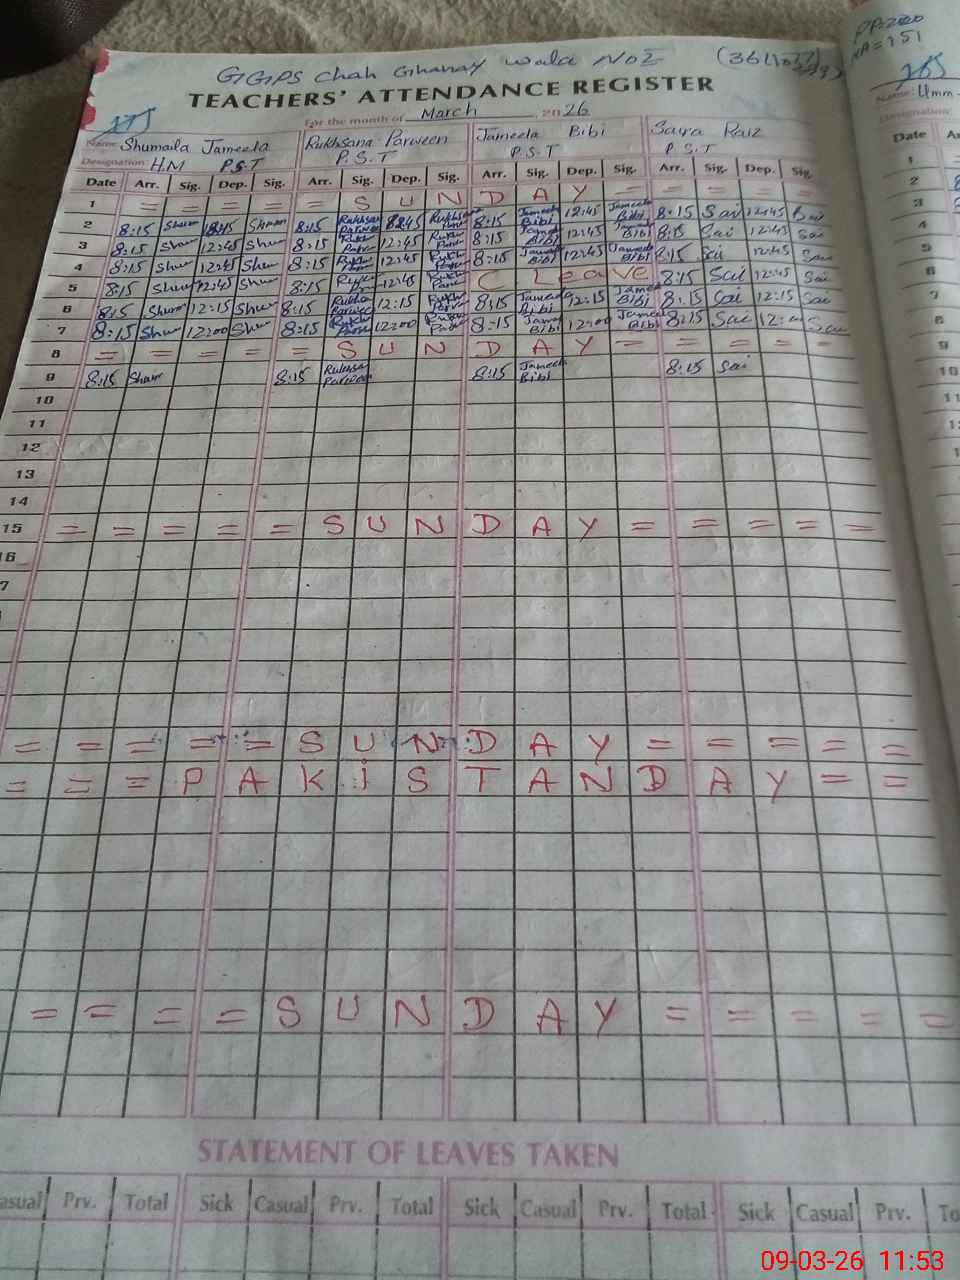 GGPS Chah Ghanay wala No 2
TEACHERS' ATTENDANCE REGISTER
For the month of March 2026
Name: Shumaila Jameela Rukhsana Parween Jameela Bibi Saira Raiz
Designation: H.M P.S.T P.S.T P.S.T P.S.T
Date Arr. Sig. Dep. Sig. Arr. Sig. Dep. Sig. Arr. Sig. Dep. Sig. Arr. Sig. Dep. Sig.
1 = = = = = S U N D A Y = = = = =
2 8:15 Shum 12:45 Shum 8:15 Rukhsana Parween 12:45 Rukhsana Parw 8:15 Jameela Bibi 12:45 Jameela Bibi 8:15 Sai 12:45 Sai
3 8:15 Shum 12:45 Shum 8:15 Rukh Parw 12:45 Rukh Parw 8:15 Jamee Bibi 12:45 Jamee Bibi 8:15 Sai 12:45 Sai
4 8:15 Shum 12:45 Shum 8:15 Rukh Parw 12:45 Rukh Parw 8:15 Jamee Bibi 12:45 Jameela Bibi 8:15 Sai 12:45 Sai
5 8:15 Shum 12:45 Shum 8:15 12:45 Rukh Parw C Leave 8:15 Sai 12:45 Sai
6 8:15 Shum 12:15 Shum 8:15 Rukhs Parwee 12:15 Rukhs Parw 8:15 Jamee Bibi 12:15 Jamee Bibi 8:15 Sai 12:15 Sai
7 8:15 Shum 12:00 Shum 8:15 Rukh Parw 12:00 Rukh Parw 8:15 Jame Bibi 12:00 Jamee Bibi 8:15 Sai 12:00 Sai
8 = = = = = S U N D A Y = = = = =
9 8:15 Shum 8:15 Rukhsa Parween 8:15 Jameela Bibi 8:15 Sai
10
11
12
13
14
15 = = = = = S U N D A Y = = = = =
16
7
= = = = = S U N D A Y = = = = =
= = = P A K i S T A N D A Y = =
= = = = S U N D A Y = = = = =
STATEMENT OF LEAVES TAKEN
asual Prv. Total Sick Casual Prv. Total Sick Casual Prv. Total Sick Casual Prv. To
Name: Umm
Designation:
Date
1
2
3
4
5
6
7
8
9
10
11
09-03-26 11:53